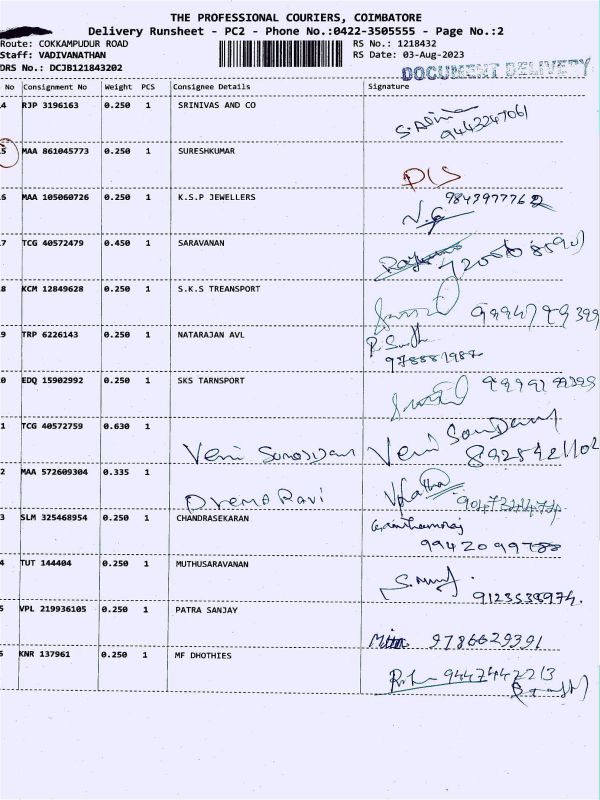 THE PROFESSIONAL COURIERS, COIMBATORE
Delivery Runsheet - PC2 - Phone No.:0422-3505555 - Page No.:2
Route: COKKAMPUDUR ROAD RS No.: 1218432
Staff: VADIVANATHAN RS Date: 03-Aug-2023
DRS No.: DCJB121843202 DOCUMENT DELIVERY
No Consignment No Weight PCS Consignee Details Signature
4 RJP 3196163 0.250 1 SRINIVAS AND CO
9443247061
5 MAA 861045773 0.250 1 SURESHKUMAR
MAA 105060726 0.250 1 K.S.P JEWELLERS 9843977762
7 TCG 40572479 0.450 1 SARAVANAN
8 KCM 12849628 0.250 1 S.K.S TREANSPORT
9 TRP 6226143 0.250 1 NATARAJAN AVL
0 EDQ 15902992 0.250 1 SKS TARNSPORT
1 TCG 40572759 0.630 1
Veni Veni
2 MAA 572609304 0.335 1
Prema Ravi
3 SLM 325468954 0.250 1 CHANDRASEKARAN
9942099788
4 TUT 144404 0.250 1 MUTHUSARAVANAN
9123538974.
5 VPL 219936105 0.250 1 PATRA SANJAY
9786629391
KNR 137961 0.250 1 MF DHOTHIES
9447442213